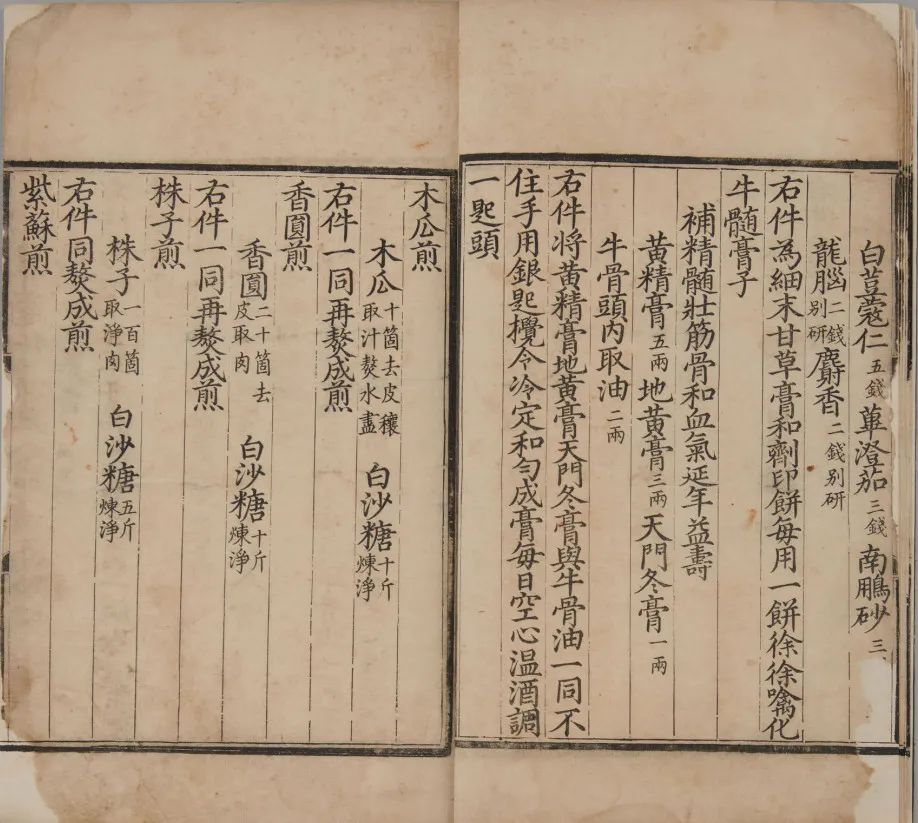 白荳蔻仁五錢蓽澄茄三錢南鵬砂三
龍腦二錢别研麝香二錢别研
右件為細末甘草膏和劑印餅每用一餅徐徐噙化
牛髓膏子
補精髓壯筋骨和血氣延年益壽
黄精膏五兩地黄膏三兩天門冬膏一兩
牛骨頭内取油二兩
右件将黄精膏地黄膏天門冬膏與牛骨油一同不
住手用銀匙攪令冷定和匀成膏每日空心温酒調
一匙頭
木瓜煎
木瓜十箇去皮穰取汁熬水盡 白沙糖十斤煉淨
右件一同再熬成煎
香圓煎
香圓二十箇去皮取肉 白沙糖十斤煉淨
右件一同再熬成煎
株子煎
株子一百箇取淨肉 白沙糖五斤煉淨
右件同熬成煎
紫蘇煎